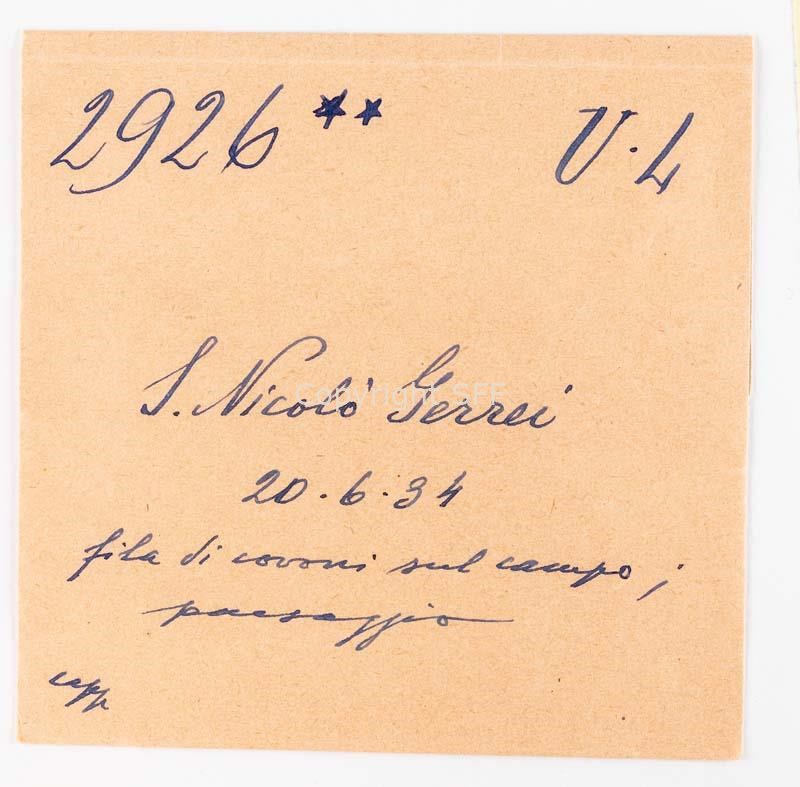 2926 ** V. 4
S. Nicolò Gerrei
Copyright SFF
20.6.34
fila di covoni sul campo;
paesaggio
capp